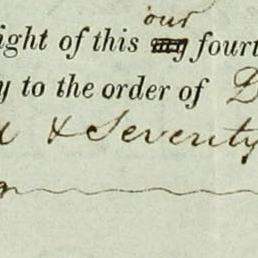 our
ight of this my fourt
y to the order of
& Seventy